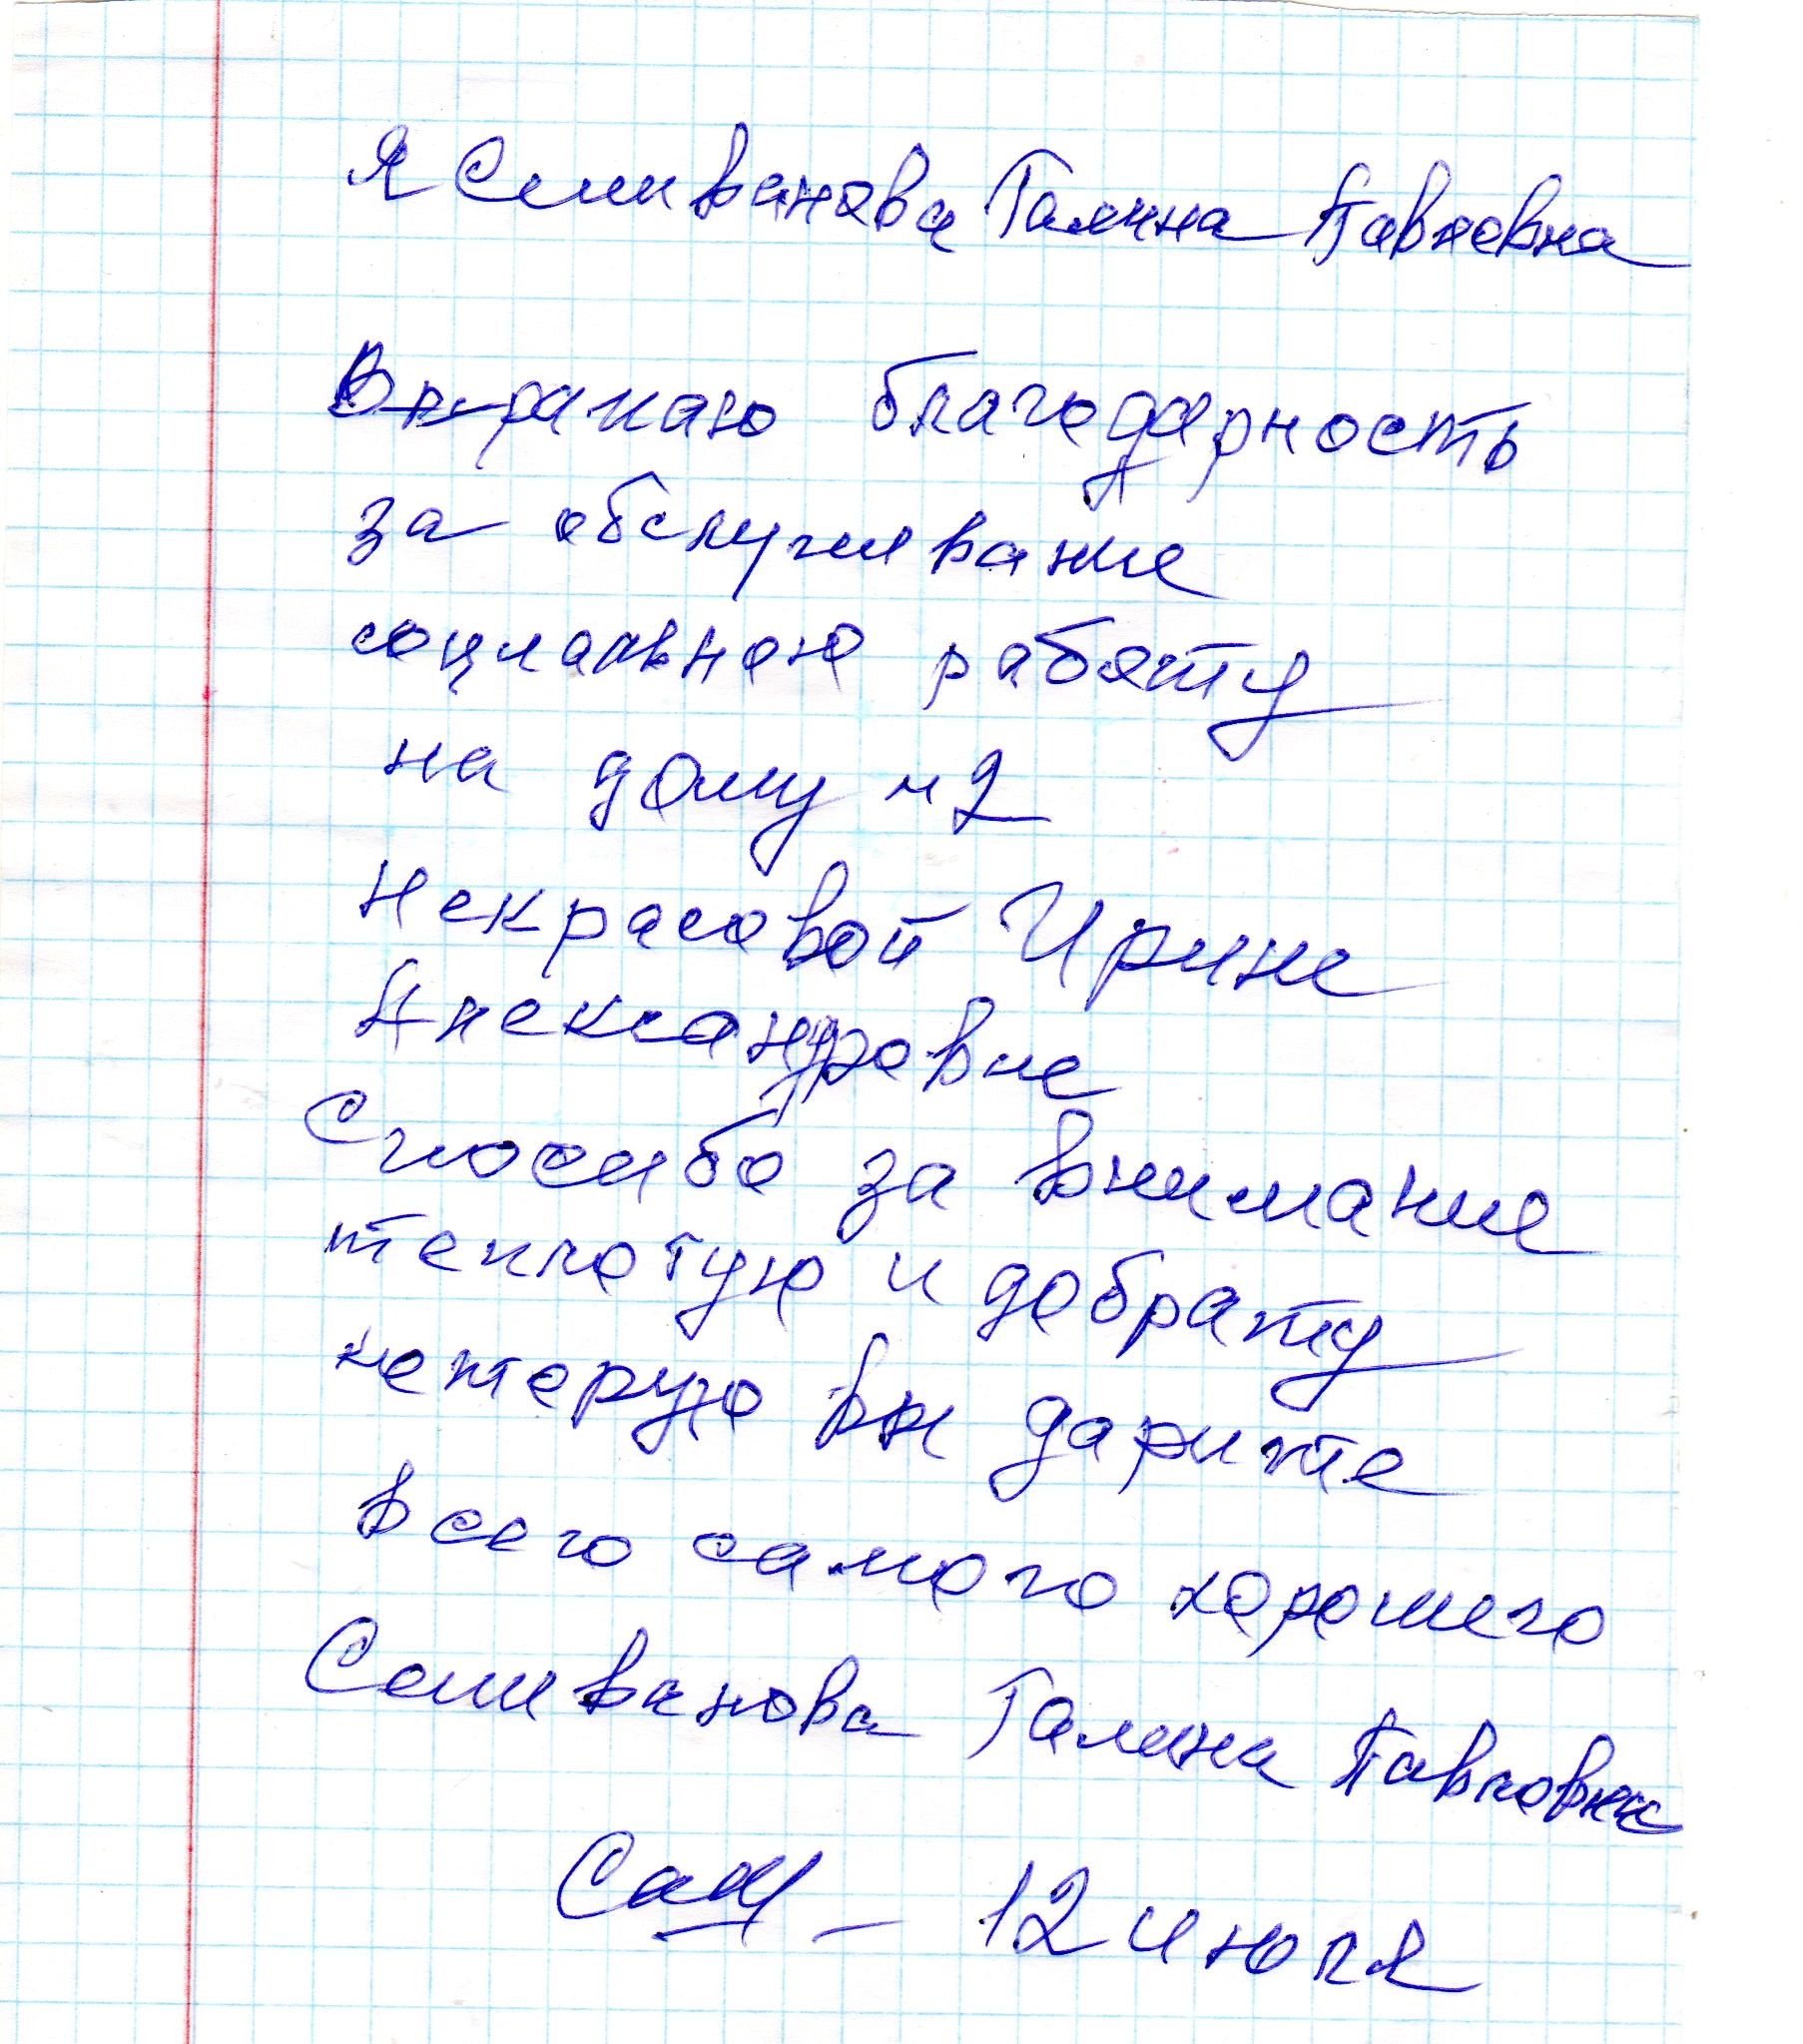 Я Селиванова Галина Павловна
Выражаю благодарность
за обслуживание
социальною работу
на дому н2
Некрасовой Ирине
Александровне
Спосибо за внимание
теплотую и доброту
которую вы дарите
всего самого хорошего
Селиванова Галина Павловна
12 июля